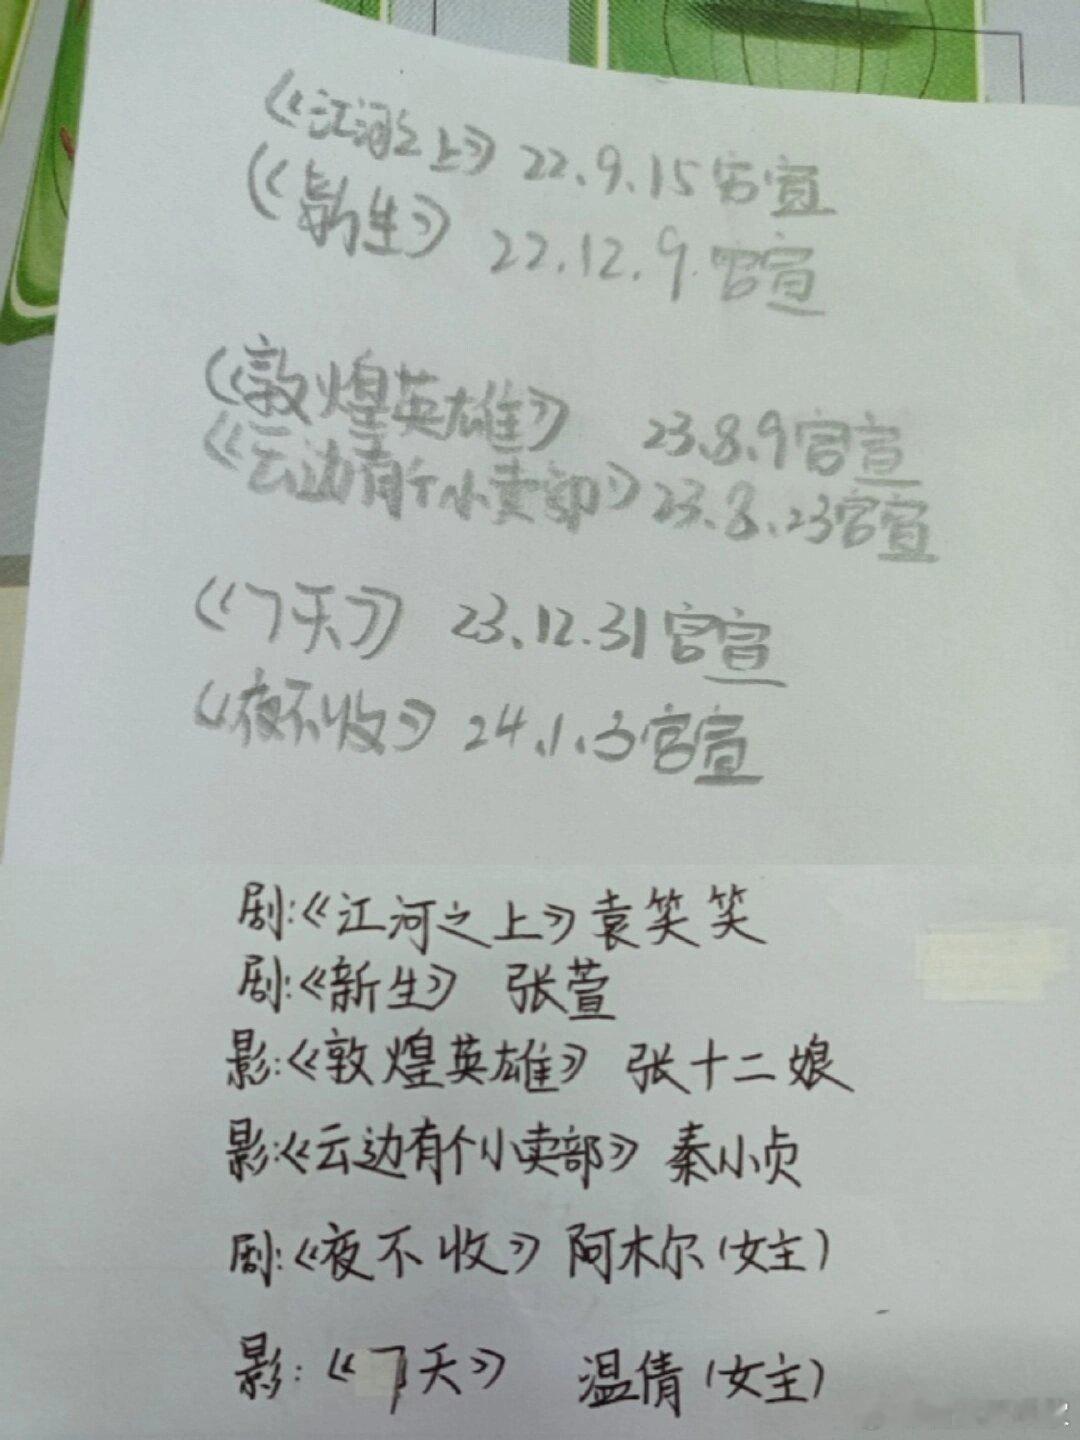 《江河之上》 22.9.15官宣
《新生》 22.12.9.官宣
《敦煌英雄》 23.8.9官宣
《云边有个小卖部》23.8.23官宣
《7天》 23.12.31官宣
《夜不收》 24.1.3官宣
剧:《江河之上》袁笑笑
剧:《新生》 张萱
影:《敦煌英雄》 张十二娘
影:《云边有个小卖部》 秦小贞
剧:《夜不收》 阿木尔(女主)
影:《7天》 温倩(女主)